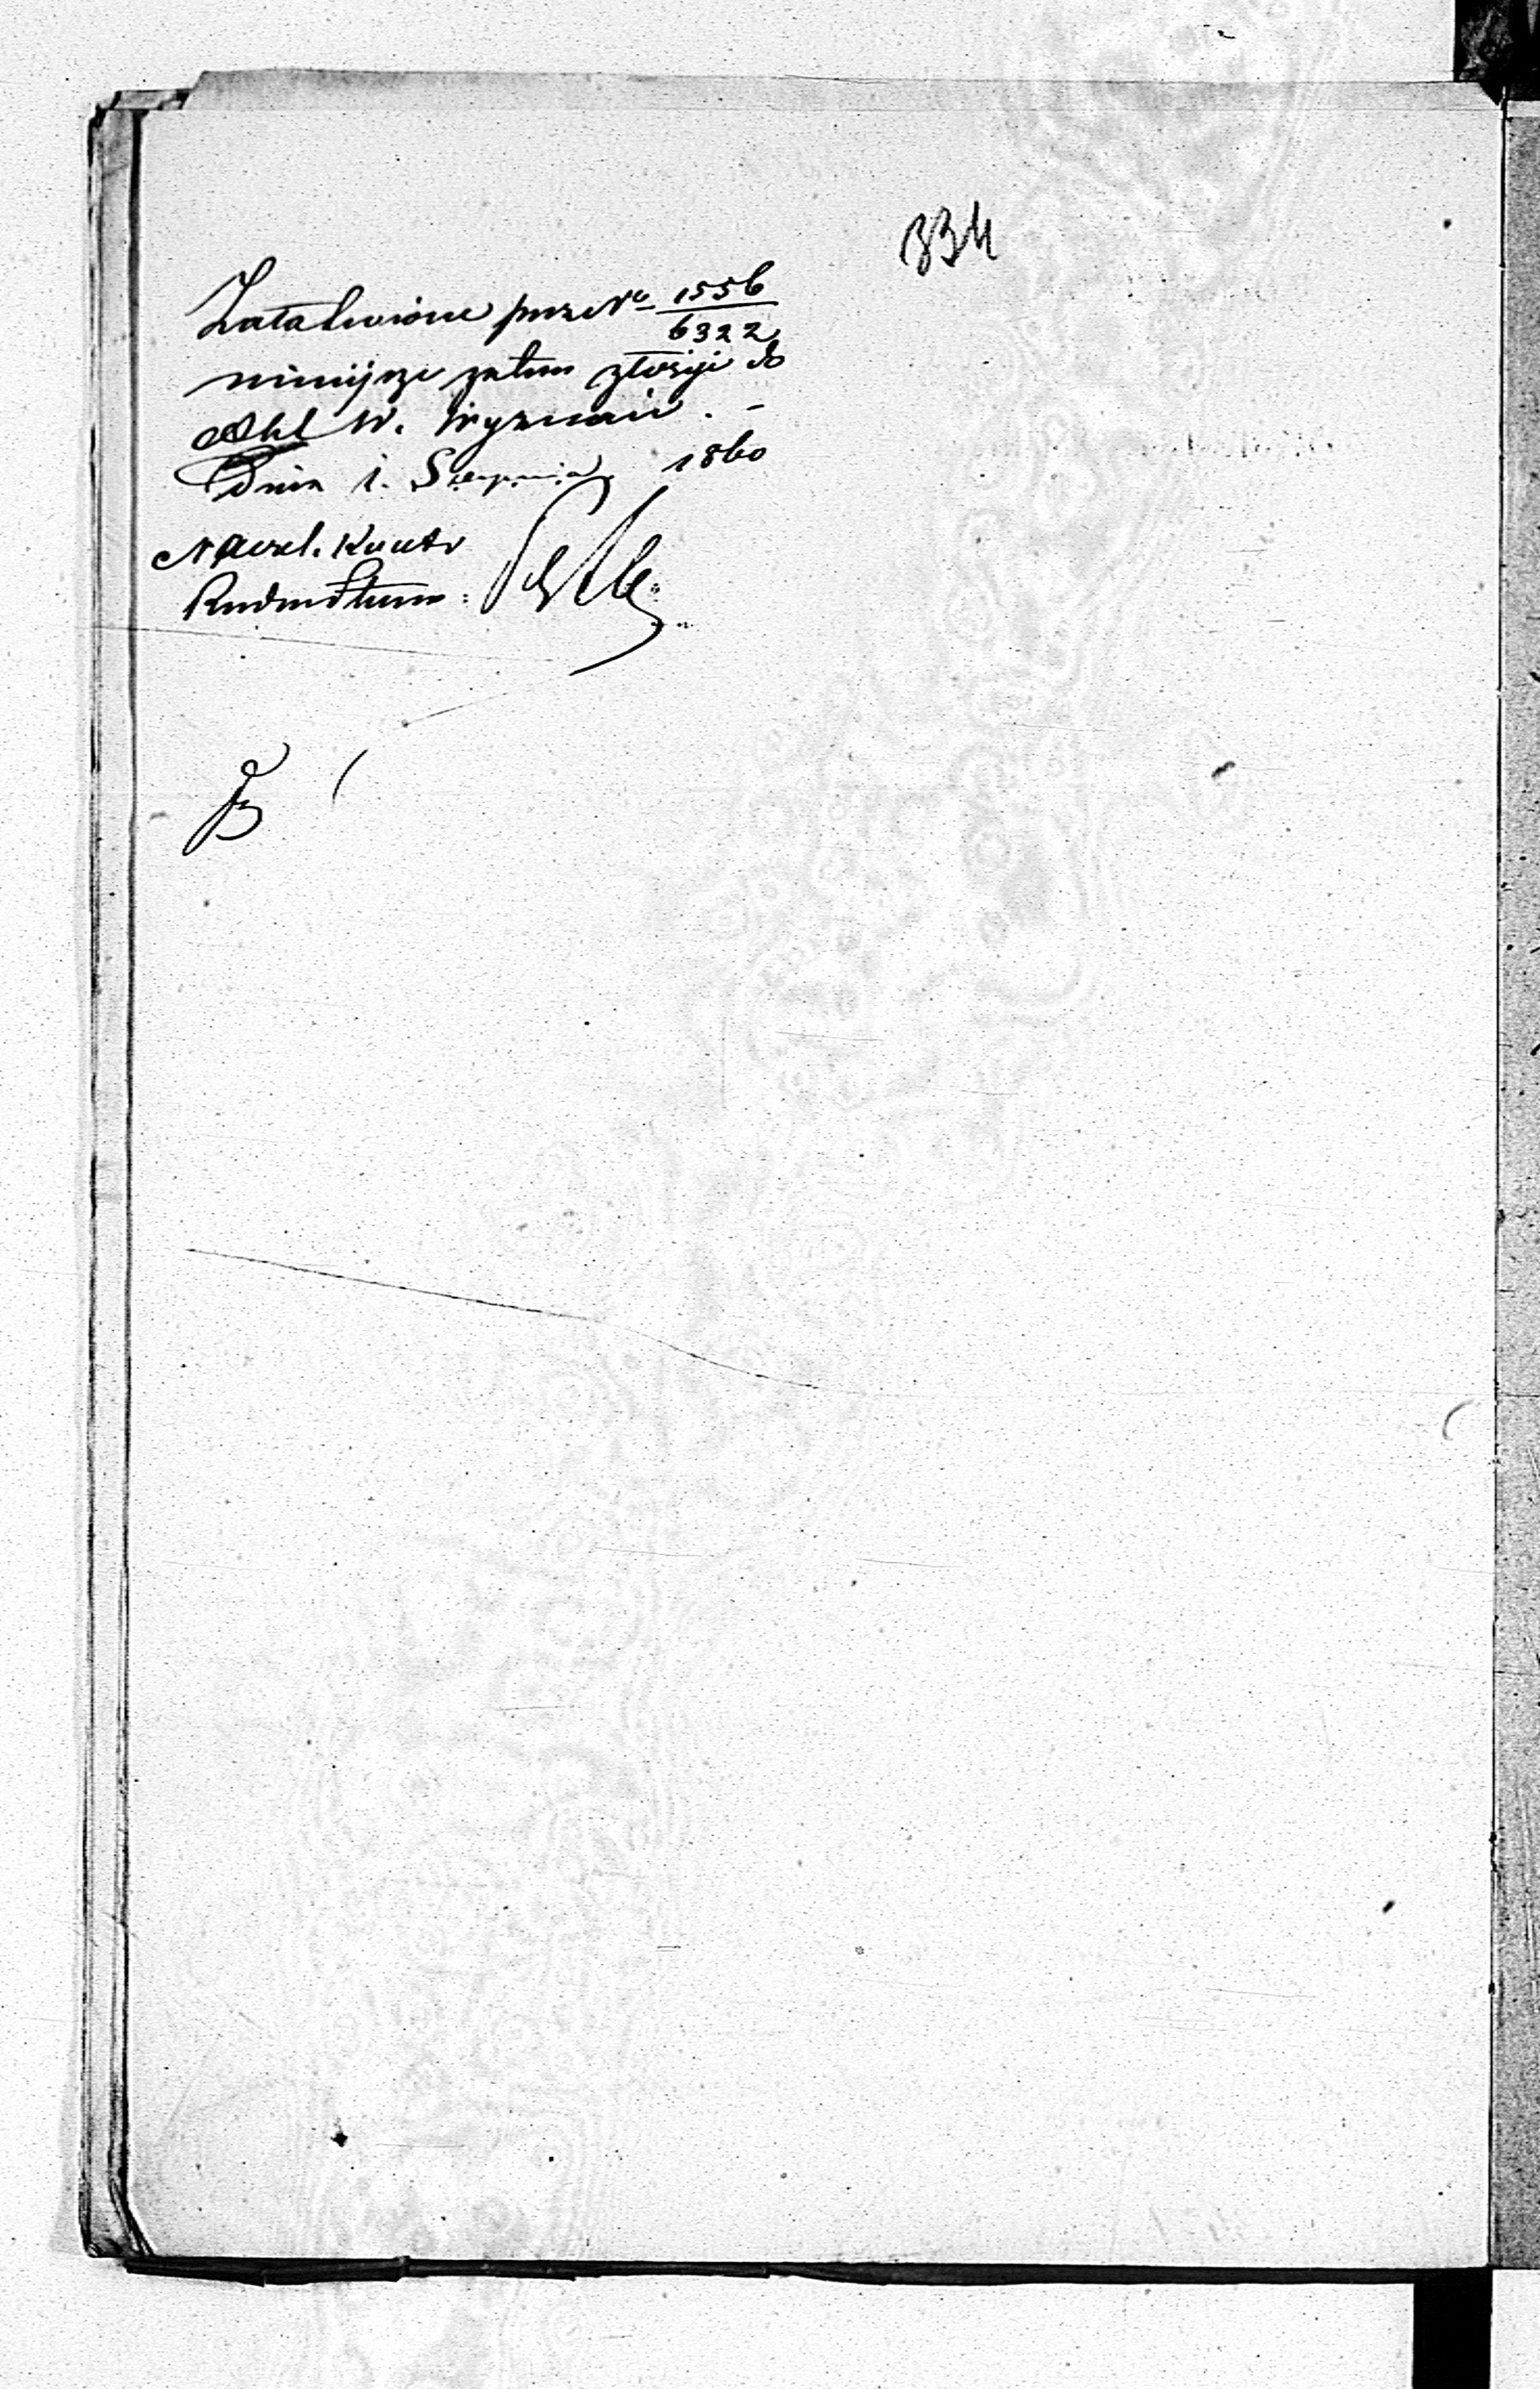 334
Załatwione przez No 1556/6322
niniejsze zatem złożyć do
Akt W. Wyznań. -
Dnia 1. Sierpnia 1860
Naczel. Kontr